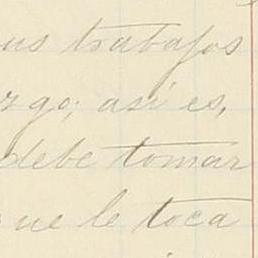 us trabajos
rgo; asi es,
debe tomar
ue le toca